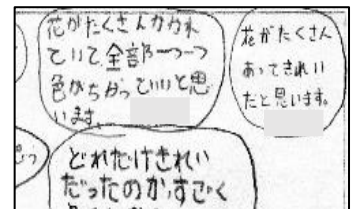 花がたくさんかかれ
ていて、全部一つ一つ
色がちがっていいと思
います
花がたくさん
あってきれい
だと思います。
どれだけきれい
だったのか、すごく